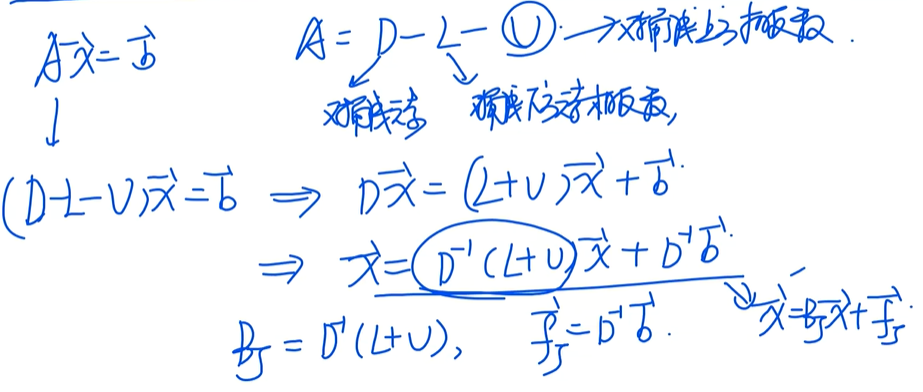 A\vec{x}=\vec{b}    A = D - L - U → 对角线上元素相反数.
对角线元素    对角线下元素相反数,
(D-L-U)\vec{x}=\vec{b} ⇒ D\vec{x}=(L+U)\vec{x}+\vec{b}.
⇒ \vec{x}=D^{-1}(L+U)\vec{x}+D^{-1}\vec{b}.
B_J=D^{-1}(L+U), \vec{f}_J=D^{-1}\vec{b}.    \vec{x}=B_J\vec{x}+\vec{f}_J.